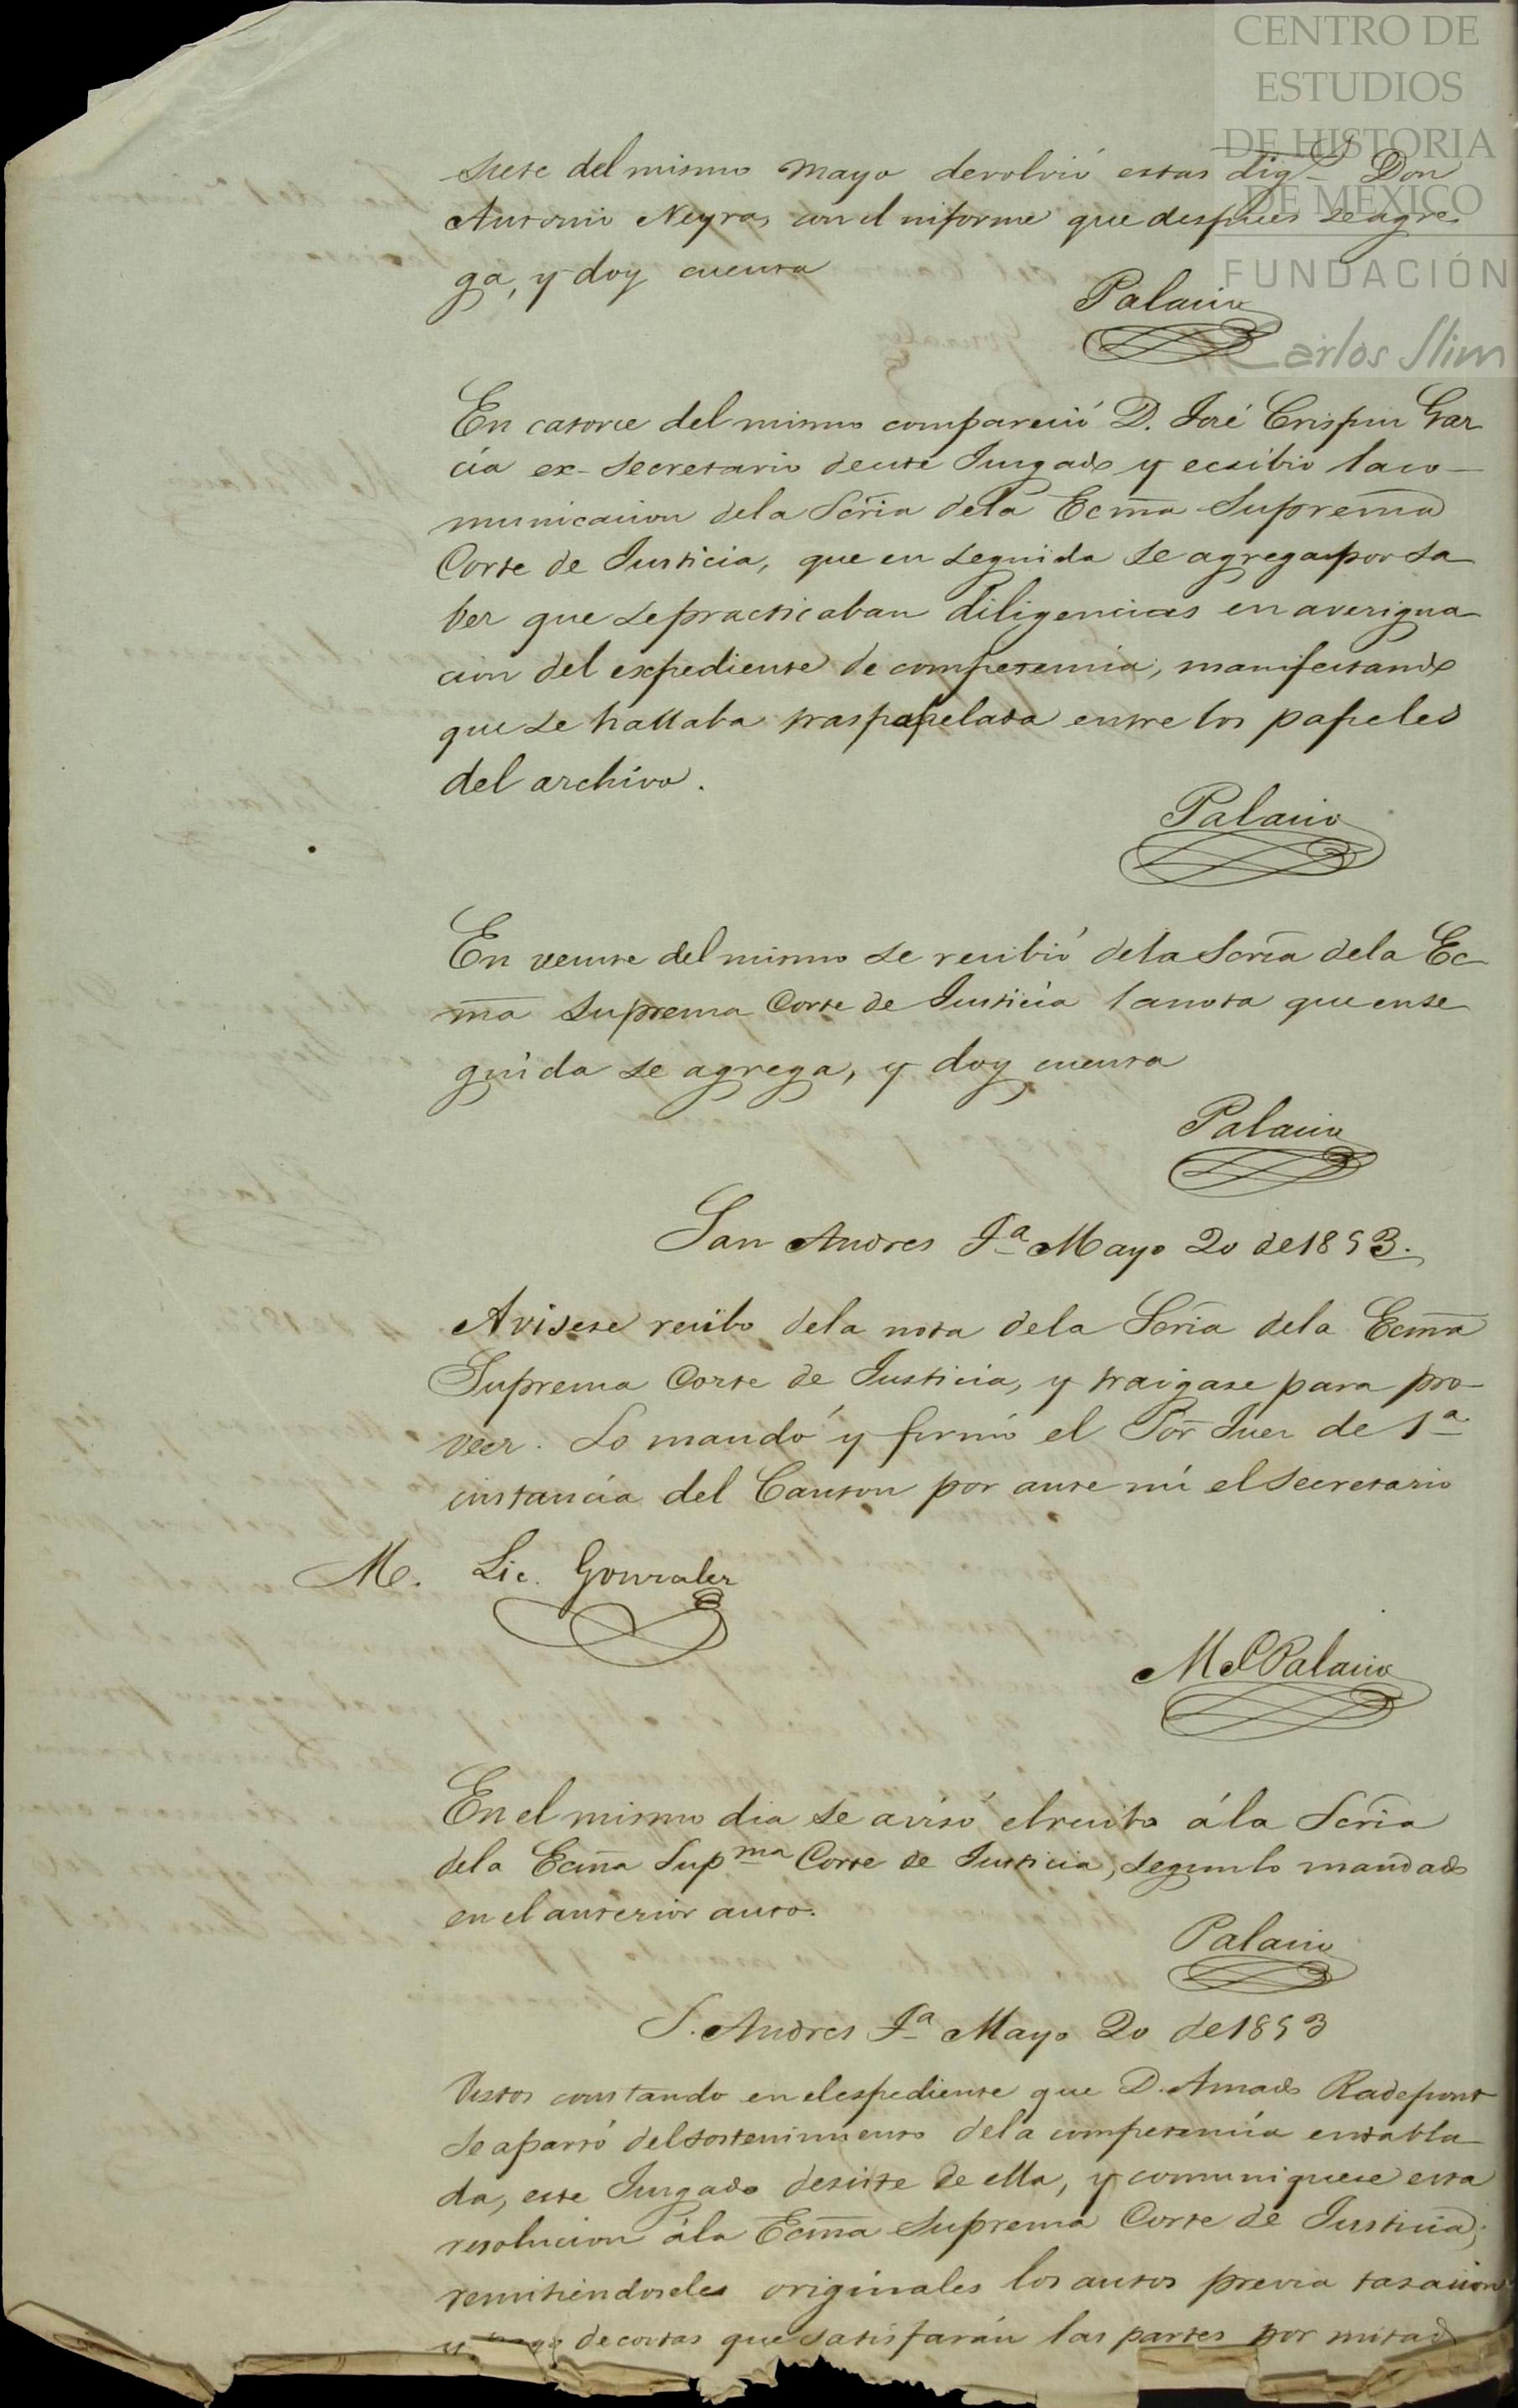 CENTRO DE
ESTUDIOS
DE HISTORIA
DE MÉXICO
FUNDACIÓN
Carlos Slim
siete del mismo Mayo devolvió estas dilig.s Don
Antonio Neyra, con el informe que despues se agre
ga, y doy cuenta
Palacio
En catorce del mismo compareció D. José Crispin Gar
cia ex-Secretario de este Juzgado y ecsibio la co-
municacion de la Sria de la Ecma Suprema
Corte de Justicia, que en seguida se agrega por sa
ber que se practicaban diligencias en averigua
cion del espediente de competencia, manifestando
que se hallaba traspapelada entre los papeles
del archivo.
Palacio
En veinte del mismo se recibió de la Sria de la Ec
ma Suprema Corte de Justicia la nota que en se
guida se agrega, y doy cuenta
Palacio
San Andres Ja Mayo 20 de 1853.
Avisese recibo de la nota de la Sria de la Ecma
Suprema Corte de Justicia, y traigase para pro-
veer. Lo mandó y firmó el Sor Juez de 1a
instancia del Canton por ante mi el Secretario
M. Lic. Gonzalez
M Palacio
En el mismo dia se avisó el recibo á la Sria
de la Ecma Supma Corte de Justicia, segun lo mandado
en el anterior auto.
Palacio
S. Andres Ja Mayo 20 de 1853
Vistos constando en el espediente que D. Amado Radepont
se apartó del sostenimiento de la competencia entabla
da, este Juzgado desiste de ella, y comuniquese esta
resolucion á la Ecma Suprema Corte de Justicia;
remitiendosele originales los autos previa tasacion
y pago de costas que satisfarán las partes por mitad